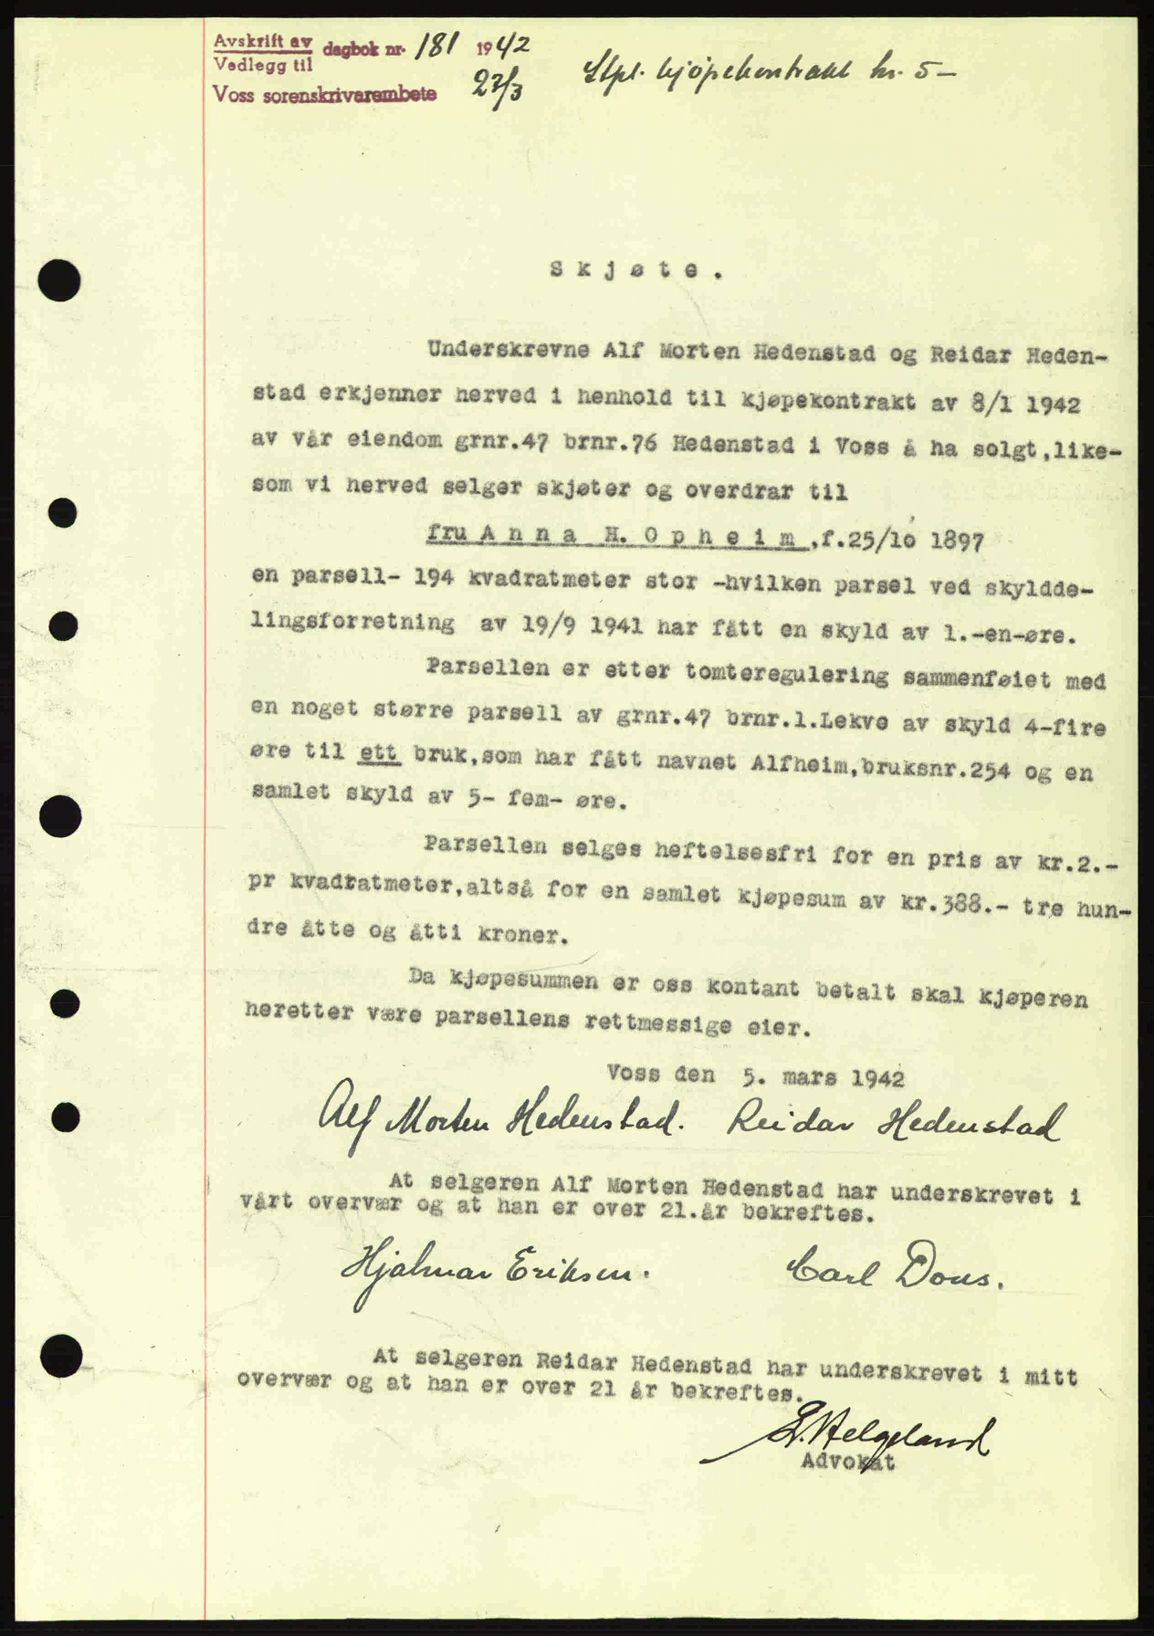 Avskrift av dagbok nr. 181 1942
Vedlegg til
Voss sorenskrivarembete 27/3
Stpl. kjøpekontrakt kr. 5-
S k j ø t e .
Underskrevne Alf Morten Hedenstad og Reidar Heden-
stad erkjenner herved i henhold til kjøpekontrakt av 8/1 1942
av vår eiendom grnr.47 brnr.76 Hedenstad i Voss å ha solgt,like-
som vi herved selger skjøter og overdrar til
fru A n n a H. O p h e i m ,f.25/10 1897
en parsell- 194 kvadratmeter stor -hvilken parsel ved skyldde-
lingsforretning av 19/9 1941 har fått en skyld av 1.-en-øre.
Parsellen er etter tomteregulering sammenføiet med
en noget større parsell av grnr.47 brnr.1.Lekve av skyld 4-fire
øre til ett bruk,som har fått navnet Alfheim,bruksnr.254 og en
samlet skyld av 5- fem- øre.
Parsellen selges heftelsesfri for en pris av kr.2.-
pr kvadratmeter,altså for en samlet kjøpesum av kr.388.- tre hun-
dre åtte og åtti kroner.
Da kjøpesummen er oss kontant betalt skal kjøperen
heretter være parsellens rettmessige eier.
Voss den 5. mars 1942
Alf Morten Hedenstad. Reidar Hedenstad
At selgeren Alf Morten Hedenstad har underskrevet i
vårt overvær og at han er over 21.år bekreftes.
Hjalmar Eriksen. Carl Dous.
At selgeren Reidar Hedenstad har underskrevet i mitt
overvær og at han er over 21 år bekreftes.
L. Helgeland
Advokat